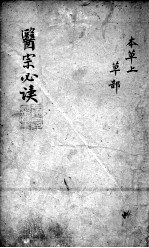 本草上
草部
醫宗必读